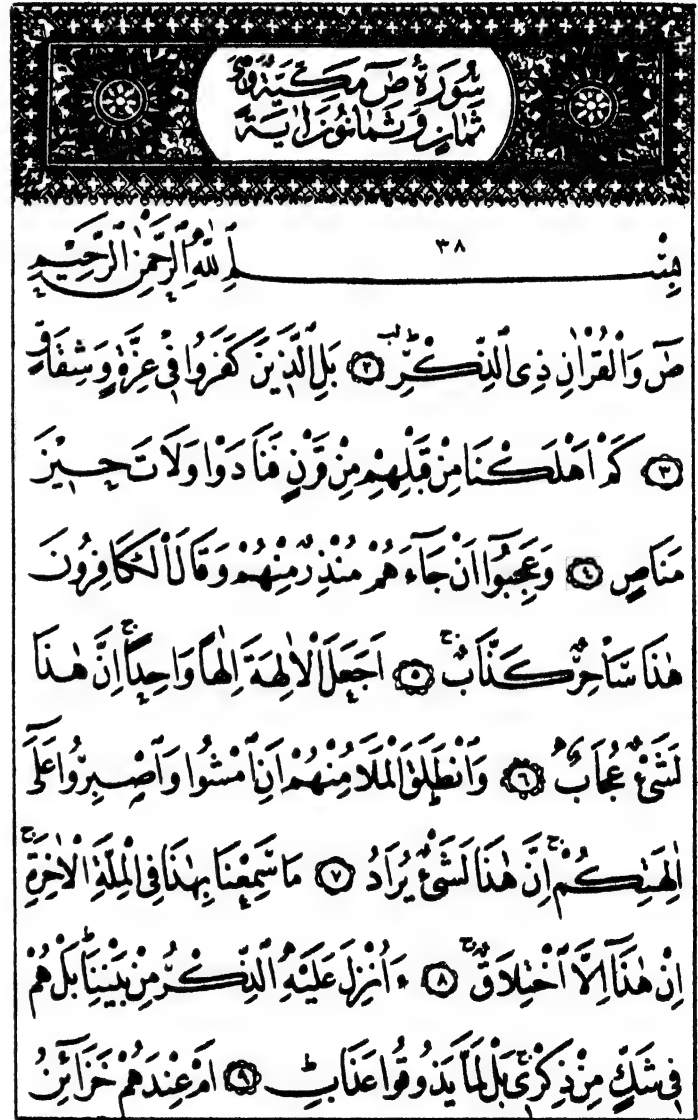 سُورَةُ صٓ مَكِّيَّةٌ وَهِيَ
ثَمَانٍ وَثَمَانُونَ اٰيَةً
٣٨
بِسْمِ ٱللّٰهِ ٱلرَّحْمٰنِ ٱلرَّحِيمِ
صٓ وَٱلْقُرْاٰنِ ذِى ٱلذِّكْرِ ۝٢ بَلِ ٱلَّذِينَ كَفَرُوا فِى عِزَّةٍ وَشِقَاقٍ
۝٣ كَمْ اَهْلَكْنَا مِنْ قَبْلِهِمْ مِنْ قَرْنٍ فَنَادَوْا وَلَاتَ حِينَ
مَنَاصٍ ۝٤ وَعَجِبُوٓا اَنْ جَآءَهُمْ مُنْذِرٌ مِنْهُمْ وَقَالَ ٱلْكَافِرُونَ
هٰذَا سَاحِرٌ كَذَّابٌ ۝٥ اَجَعَلَ ٱلْاٰلِهَةَ اِلٰهًا وَاحِدًا اِنَّ هٰذَا
لَشَىْءٌ عُجَابٌ ۝٦ وَٱنْطَلَقَ ٱلْمَلَاُ مِنْهُمْ اَنِ ٱمْشُوا وَٱصْبِرُوا عَلٰٓى
اٰلِهَتِكُمْ اِنَّ هٰذَا لَشَىْءٌ يُرَادُ ۝٧ مَا سَمِعْنَا بِهٰذَا فِى ٱلْمِلَّةِ ٱلْاٰخِرَةِ
اِنْ هٰذَآ اِلَّا ٱخْتِلَاقٌ ۝٨ ءَاُنْزِلَ عَلَيْهِ ٱلذِّكْرُ مِنْ بَيْنِنَا بَلْ هُمْ
فِى شَكٍّ مِنْ ذِكْرِى بَلْ لَمَّا يَذُوقُوا عَذَابِ ۝٩ اَمْ عِنْدَهُمْ خَزَآئِنُ